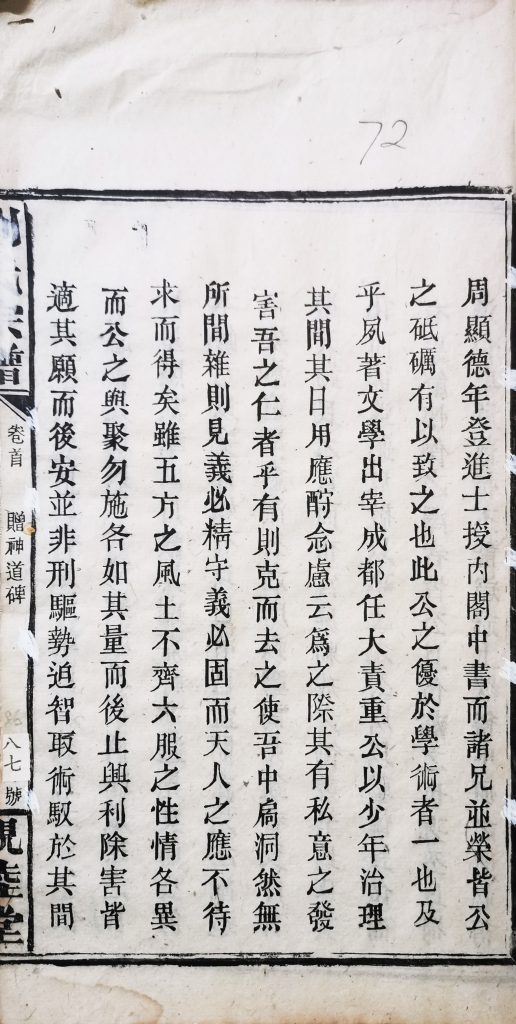 72
周顯德年登進士授內閣中書而諸兄並榮皆公
之砥礪有以致之也此公之優於學術者一也及
乎夙著文學出宰成都任大責重公以少年治理
其間其日用應酧念慮云爲之際其有私意之發
害吾之仁者乎有則克而去之使吾中扃洞然無
所間雜則見義必精守義必固而天人之應不待
求而得矣雖五方之風土不齊六服之性情各異
而公之與聚勿施各如其量而後止興利除害皆
適其願而後安並非刑驅勢迫智取術馭於其間
卷首
贈神道碑
八七號